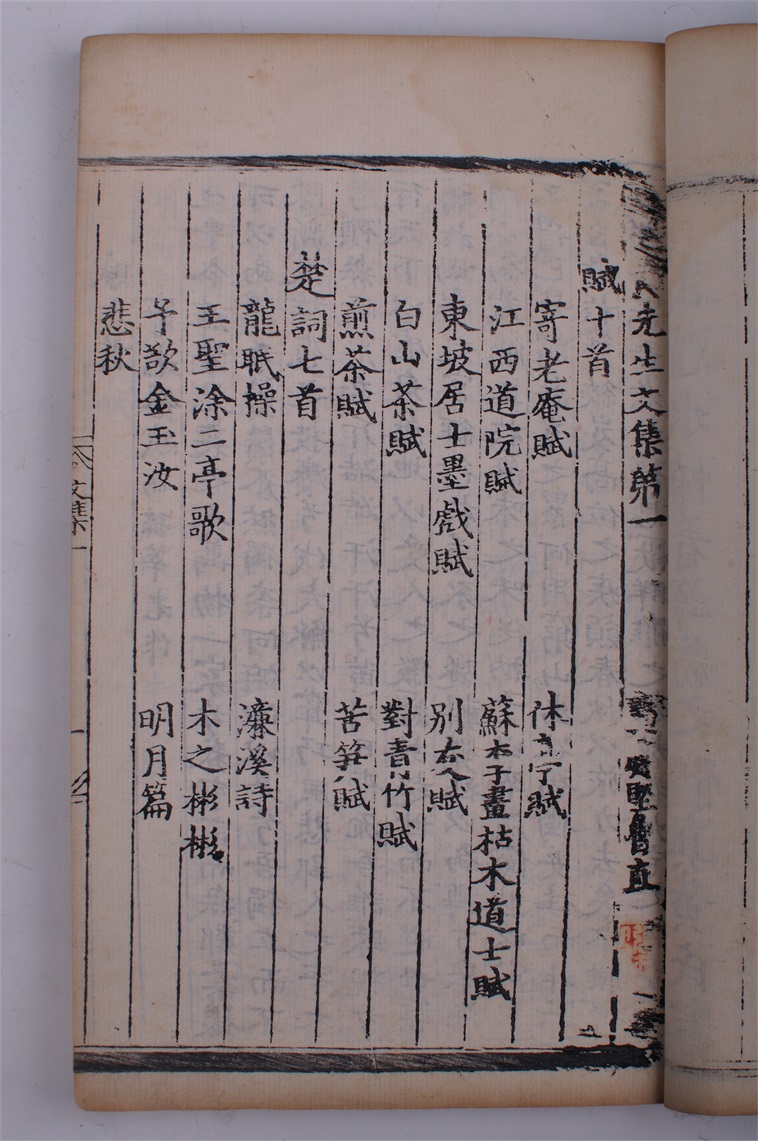 先生文集第一 黃庭堅魯直
賦十首
寄老庵賦 休亭賦
江西道院賦 蘇李畫枯木道士賦
東坡居士墨戲賦 別友賦
白山茶賦 對青竹賦
煎茶賦 苦笋賦
楚詞七首
龍眠操 濂溪詩
王聖涂二亭歌 木之彬彬
予欲金玉汝 明月篇
悲秋
文集一